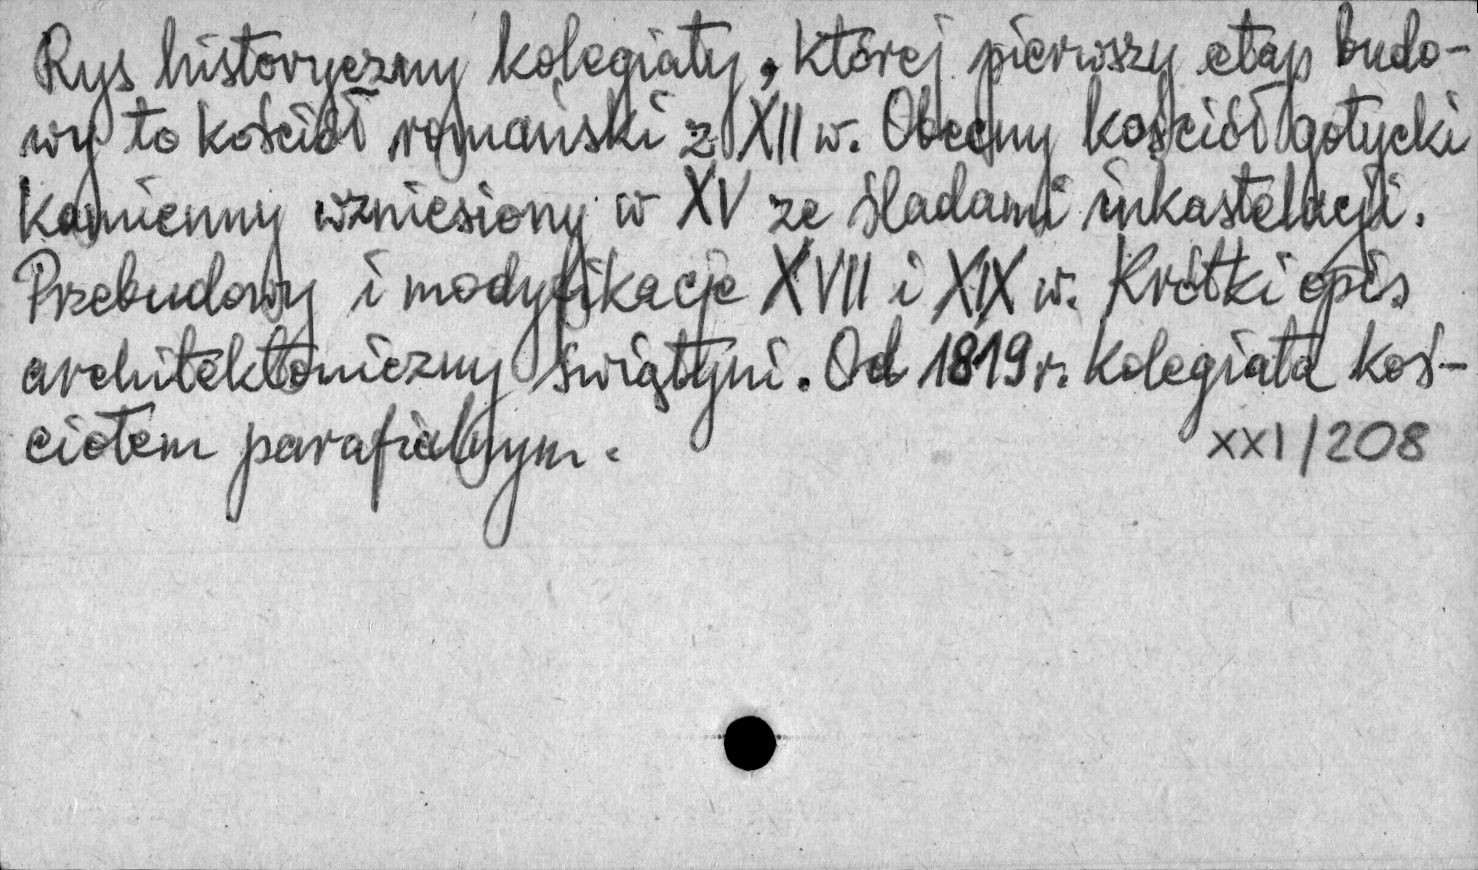 Rys historyczny kolegiaty, której pierwszy etap budo-
wy to kościół romański z XII w. Obecny kościół gotycki
kamienny wzniesiony w XV ze śladami inkastelacji.
Przebudowy i modyfikacje XVII i XIX w. Krótki opis
architektoniczny świątyni. Od 1819 r. kolegiata koś-
ciołem parafialnym.
XXI/208